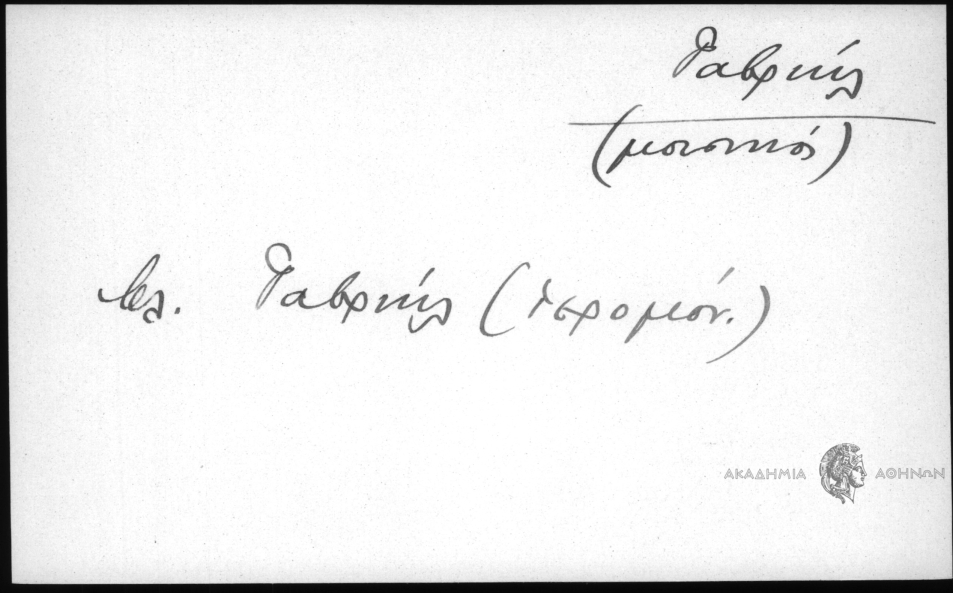 Γαβριήλ
(μουσικός)
βλ. Γαβριήλ (Ἱερομόν.)
ΑΚΑΔΗΜΙΑ ΑΘΗΝΩΝ